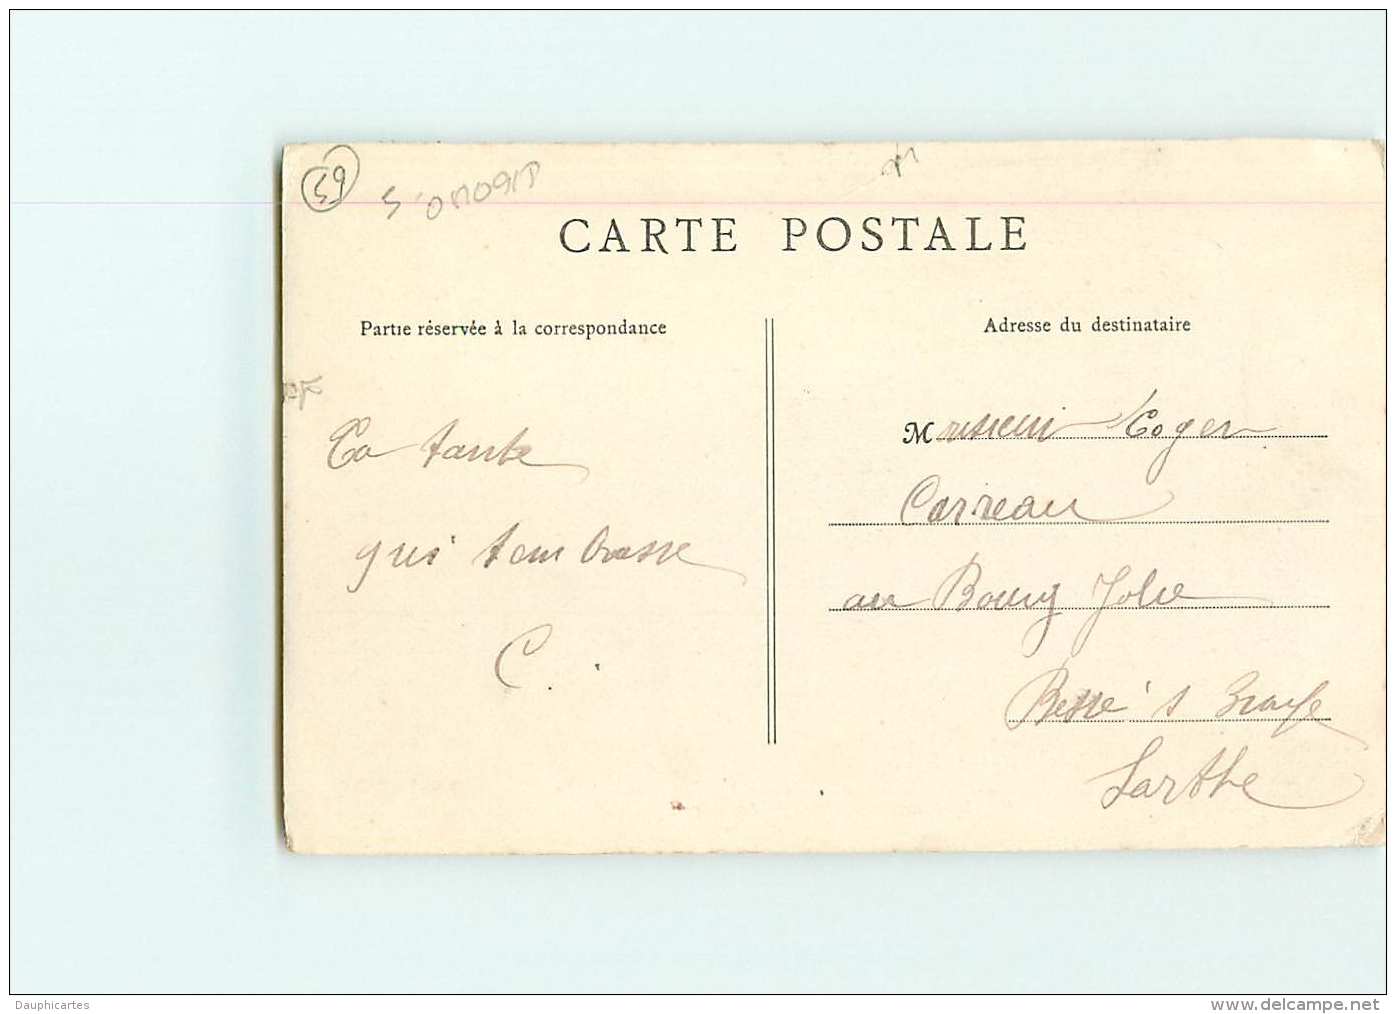 59
CARTE POSTALE
Partie réservée à la correspondance
Adresse du destinataire
Ta tante
qui t'embrasse
C.
Monsieur Roger
Carreau
au Bourg Joli
Bessé s Braye
Sarthe
Dauphicartes
www.delcampe.net